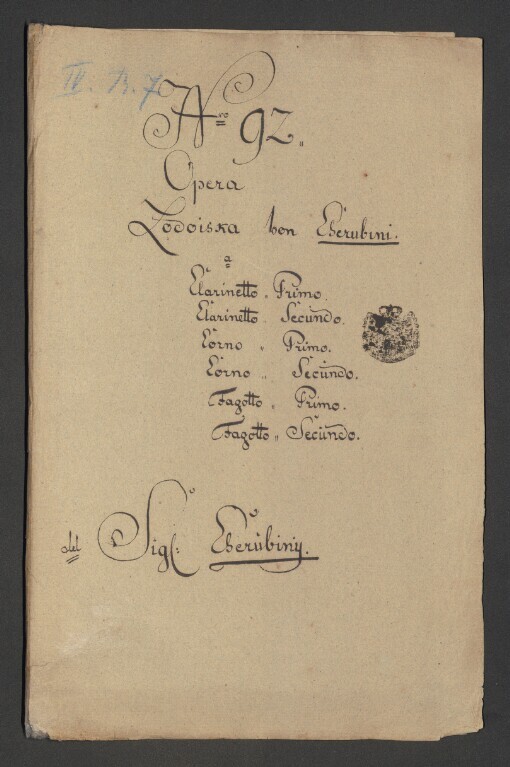 IV. B. 7
Nro 92.
Opera
Lodoiska von Cherubini.
a
Clarinetto „ Primo.
Clarinetto „ Secundo.
Corno „ Primo.
Corno „ Secundo.
Fagotto „ Primo.
Fagotto „ Secundo.
del Sigl: Cherubiny.